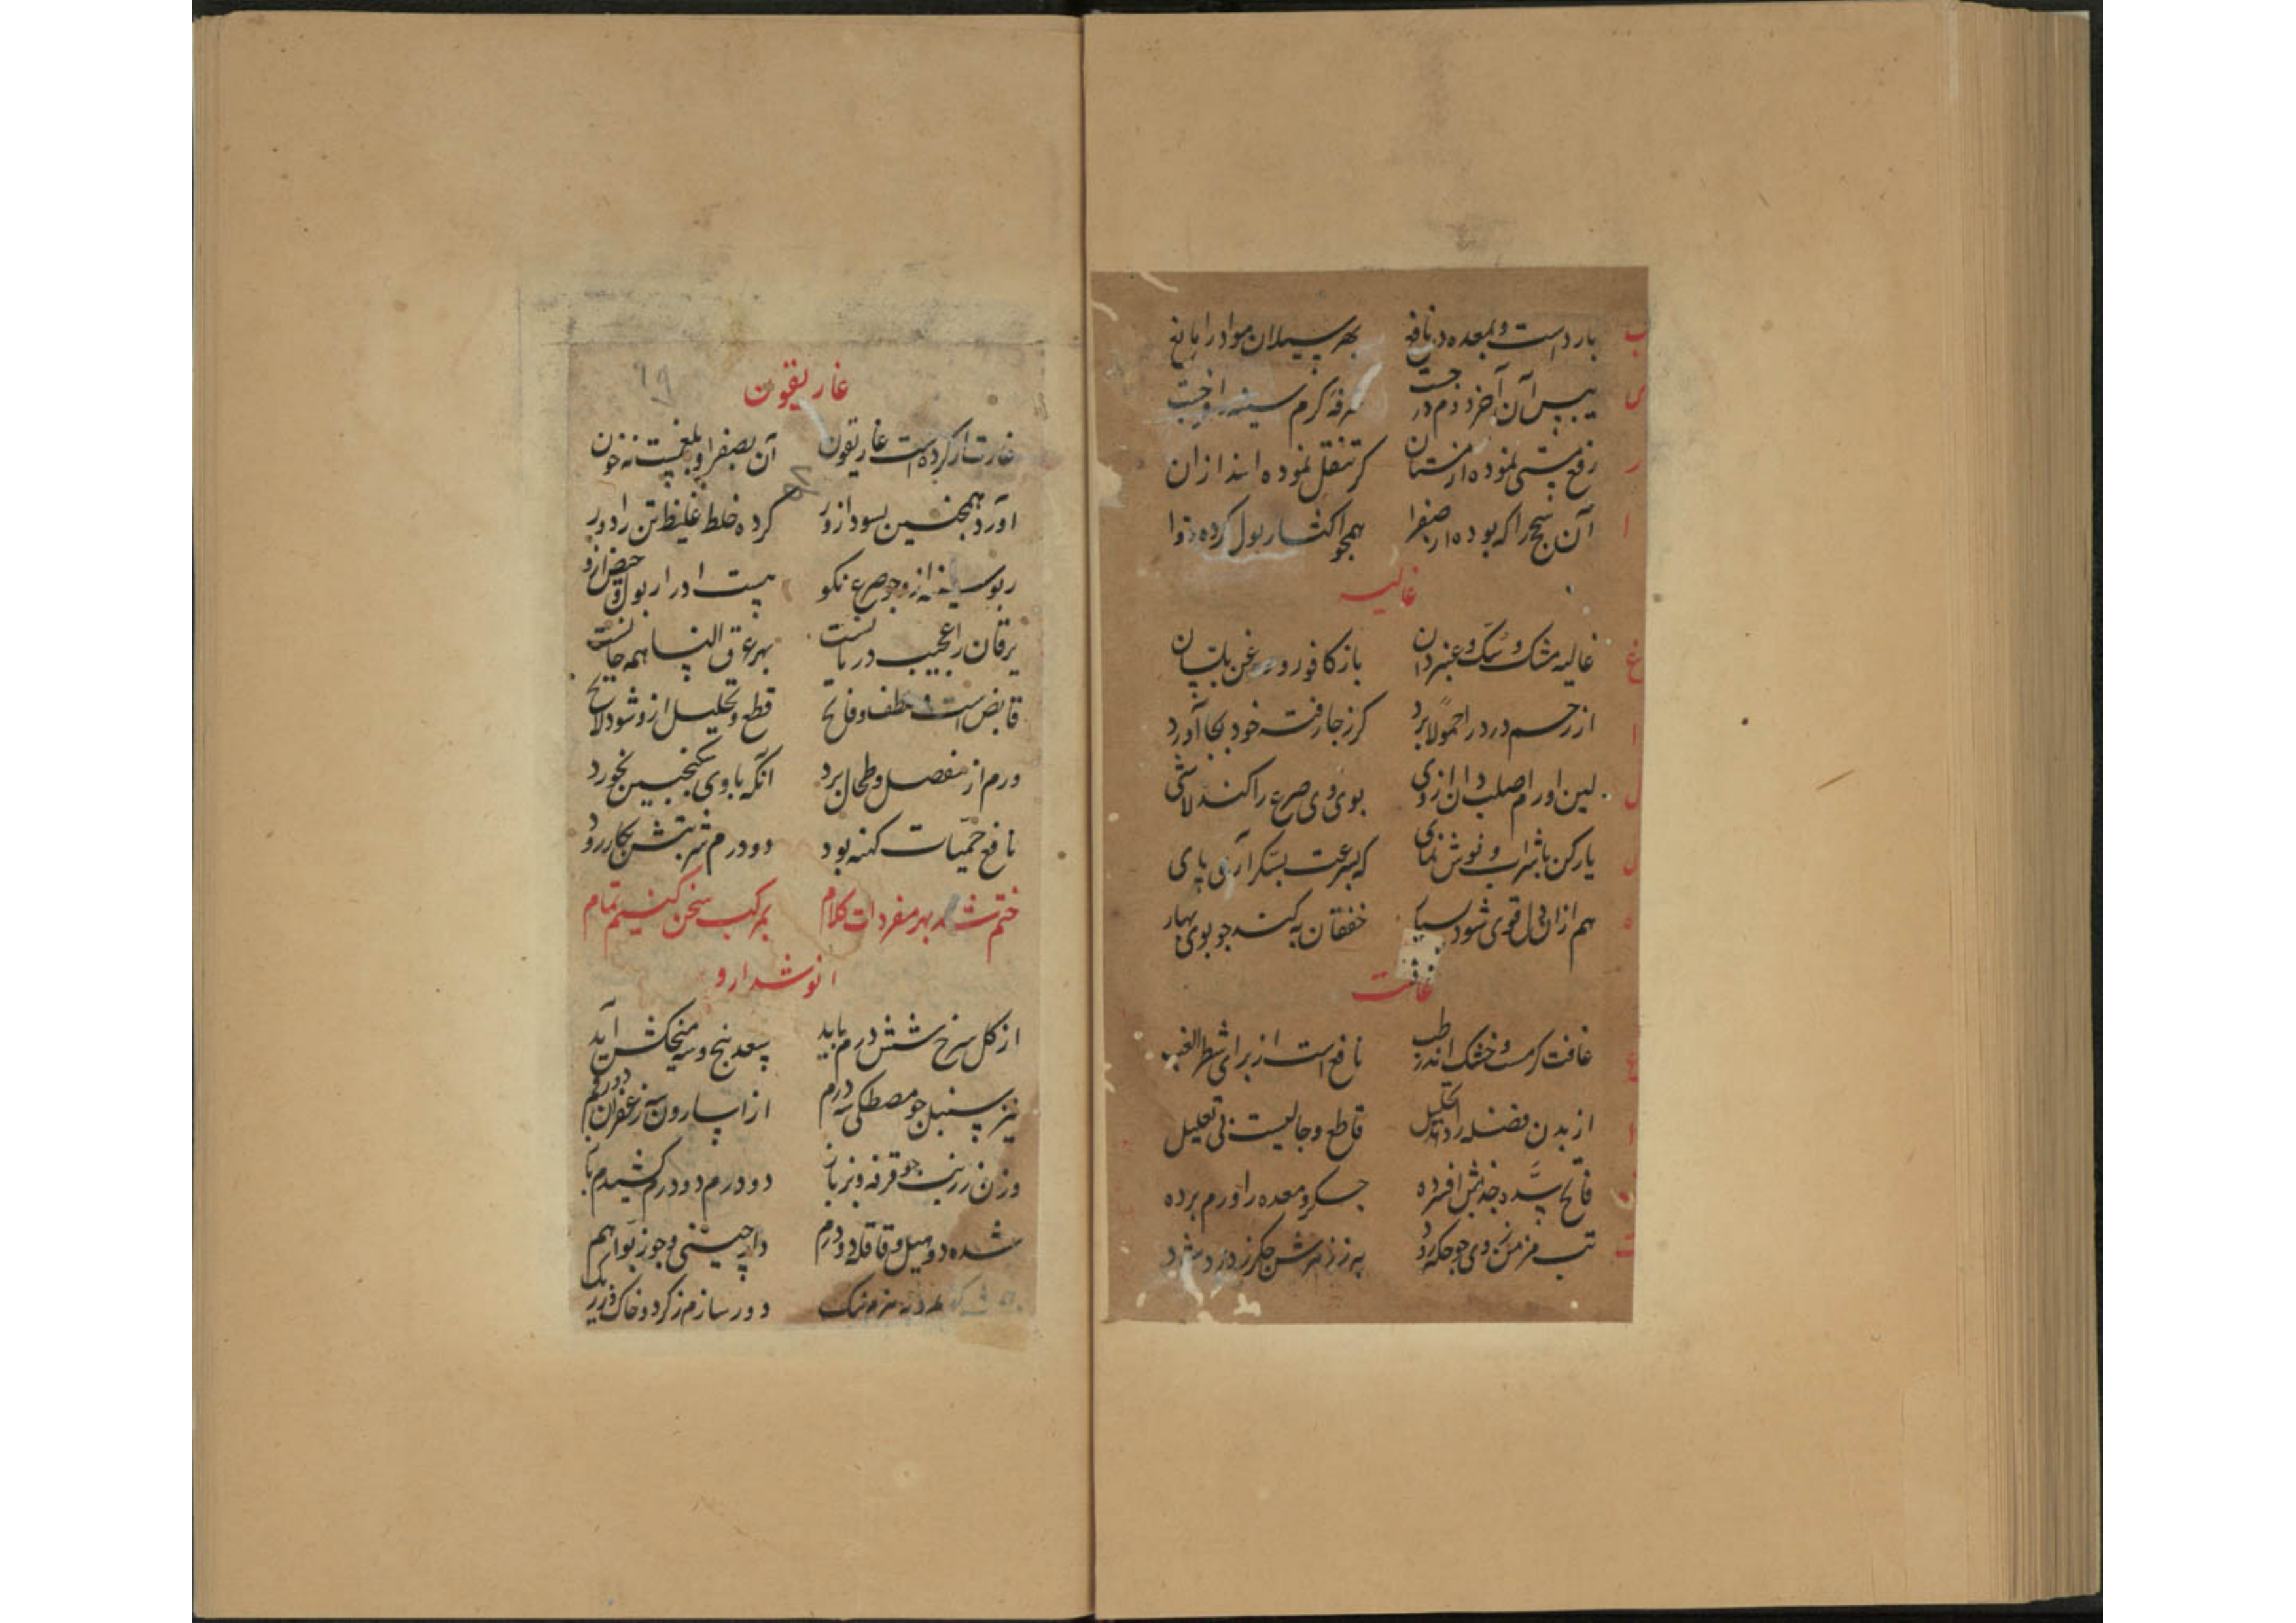 بارد است و بمعده در نافع بهر سیلان مواد را مانع
یبس آن آخر دوم در جست سرفه گرم سینه را و خبث
رفع مستی نموده از مستان گر تنقل نموده اند ازان
آن سحج را که بوده از صفرا همچو اکثار بول کرده دوا
غالیه
غالیه مشک و سک و عنبر دان باز کافور و روغن بلسان
از رحم درد را حمولا برد گر ز جا رفت خود بجا آورد
لین اورام صلب دان از وی بوی وی صرع را کند لاشی
یار کن با شراب و نوش نمای که بسرعت بسکر آری پای
هم ازان دل قوی شود بسیار خفقان به کند چو بوی بهار
غافت
غافت گرمست و خشک اندر طب نافع است از برای شطر الغب
از بدن فضله را دهد تحلیل قاطع و جالیست بی تعلیل
فاتح سده و خدیش افسرده جگر و معده را ورم برده
تب مزمن ز وی چو جگر
غاریقون
غارت ار کرده است غاریقون آن بصفرا و بلغمیست نه خون
آورد همچنین بسودا زور کرده خلط غلیظ تن را دور
ربو سینه ازو چو صرع نکو هست ادرار بول و حیض ازو
یرقان را عجیب درمانست بهر عرق النسا همه جانست
قابض است و ملطف و فاتح قطع و تحلیل ازو شود لایح
ورم از مفصل و طحال برد آنکه با وی سکنجبین بخورد
نافع حمیات کهنه بود دو درم شربتش بکار رود
ختم شد بهر مفردات کلام بمرکب سخن کنیم تمام
انوشدارو
از گل سرخ شش درم باید سعد پنج و سه میخکش آید
نیز سنبل چو مصطکی سه درم از اسارون سه زعفران دو درم
وزن زرنب چو قرفه و بزباز دو درم دو درم کشیدم باز
شده دو هیل و قاقله دو درم دارچینی و جوز بوا هم
دور سازم ز گرد و خاک